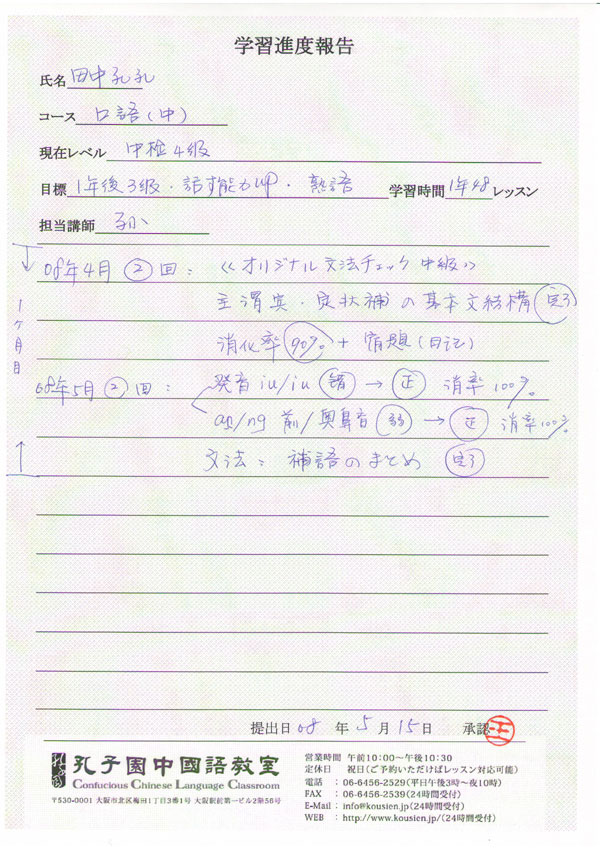 学習進度報告
氏名 田中孔孔
コース 口語(中)
現在レベル 中検4級
目標 1年後3級・話す能力up・熟語 学習時間 1年48 レッスン
担当講師
08年4月 ② 回: 《オリジナル文法チェック 中級》
主谓宾・定状補の基本文結構 完了
1ヶ月目
消化率 90% + 宿題(日记)
08年5月 ② 回: 発音 iu/iu 錯 → 正 消率100%
/ng 前/奥鼻音 弱 → 正 消率100%
文法: 補語のまとめ 完了
提出日 08 年 5 月 15 日 承認 王
孔子園中國語教室
Confucious Chinese Language Classroom
〒530-0001 大阪市北区梅田1丁目3番1号 大阪駅前第一ビル2階56号
営業時間 午前10:00~午後10:30
定休日 祝日(ご予約いただけばレッスン対応可能)
電話 : 06-6456-2529(平日午後3時~夜10時)
FAX : 06-6456-2539(24時間受付)
E-Mail : info@kousien.jp(24時間受付)
WEB : http://www.kousien.jp/(24時間受付)